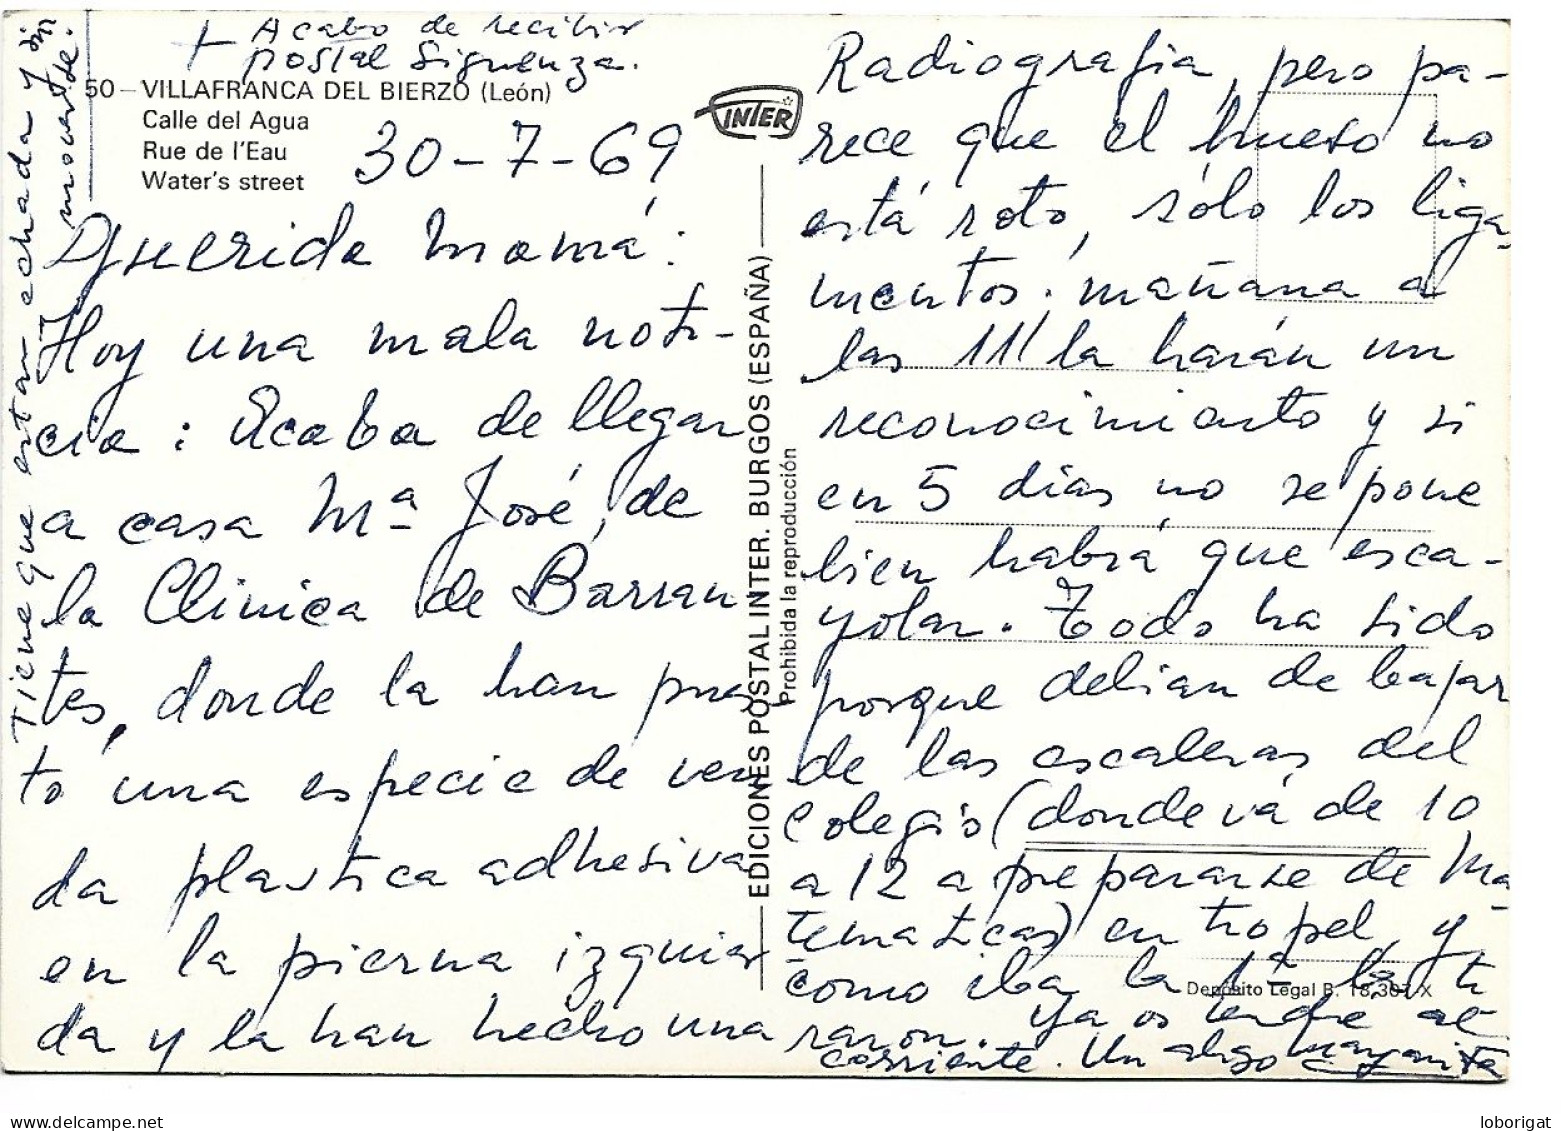 + Acabo de recibir
postal Siguenza.
50 – VILLAFRANCA DEL BIERZO (León)
Calle del Agua
Rue de l'Eau
Water's street
30-7-69
Querida Mamá:
Hoy una mala noti-
cia: Acaba de llegar
a casa Mª José, de
la Clinica de Barran
tes, donde la han pues
to una especie de ven
da plastica adhesiva
en la pierna izquier
da y la han hecho una
INTER
EDICIONES POSTAL INTER. BURGOS (ESPAÑA)
Prohibida la reproducción
Radiografia, pero pa-
rece que el hueso no
está roto, sólo los liga-
mentos; mañana a
las 11 la harán un
reconocimiento y si
en 5 dias no se pone
bien habrá que esca-
yolar. Todo ha sido
porque debian de bajar
de las escaleras del
Colegio (donde vá de 10
a 12 a prepararse de Ma-
tematicas) en tropel, y
como iba la 1ª la ti
raron. Ya os tendre al
corriente. Un abrazo Margarita
Depósito Legal B. 18.307-X
Tiene que estar echada y sin
moverse.
loborigat